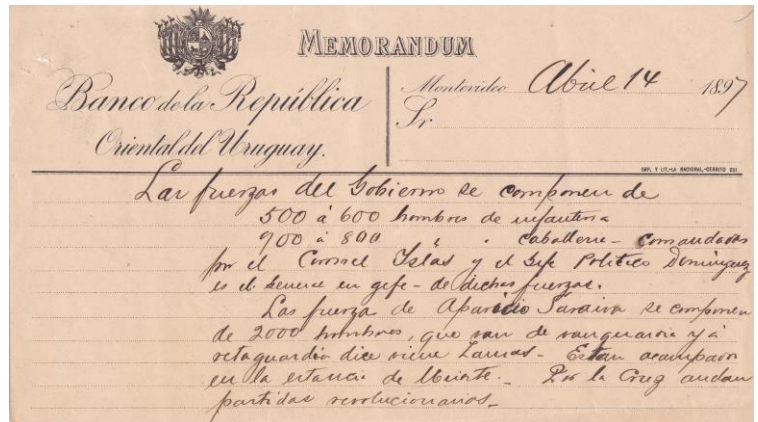 MEMORANDUM
Banco de la República
Oriental del Uruguay.
Montevideo Abril 14 1897
Sr.
IMP. Y LIT. LA NACIONAL-CERRITO
Las fuerzas del Gobierno se componen de
500 á 600 hombres de infanteria
á 800 " " caballeria - comandadas
por el Coronel Islas y el Gefe Politico Dominguez
es el General en gefe - de dichas fuerzas.
Las fuerzas de Aparicio Saraiva se componen
de 2000 hombres, que van de vanguardia y á
retaguardia dice viene Lamas - Estan acampados
en la estancia de . - Por la Cruz andan
partidas revolucionarias -